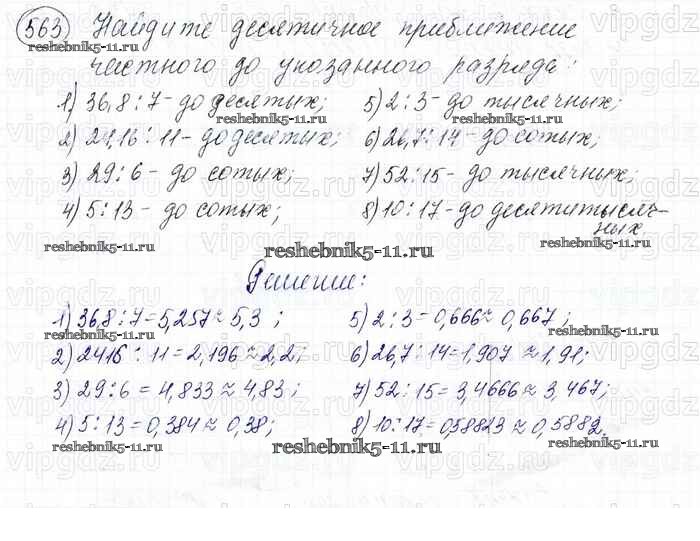 563 Найдите десятичное приближение
частного до указанного разряда:
1) 36,8 : 7 - до десятых; 5) 2 : 3 - до тысячных;
2) 24,16 : 11 - до десятых; 6) 26,7 : 14 - до сотых;
3) 29 : 6 - до сотых; 7) 52 : 15 - до тысячных;
4) 5 : 13 - до сотых; 8) 10 : 17 - до десятитысяч-
ных.
Решение:
1) 36,8 : 7 = 5,257 ≈ 5,3 ; 5) 2 : 3 = 0,666 ≈ 0,667 ;
2) 2416 : 11 = 2,196 ≈ 2,2; 6) 26,7 : 14 = 1,907 ≈ 1,91;
3) 29 : 6 = 4,833 ≈ 4,83 ; 7) 52 : 15 = 3,4666 ≈ 3,467;
4) 5 : 13 = 0,384 ≈ 0,38; 8) 10 : 17 = 0,58823 ≈ 0,5882.
reshebnik5-11.ru
reshebnik5-11.ru
reshebnik5-11.ru
reshebnik5-11.ru
reshebnik5-11.ru
reshebnik5-11.ru
reshebnik5-11.ru
reshebnik5-11.ru
reshebnik5-11.ru
reshebnik5-11.ru
vipgdz